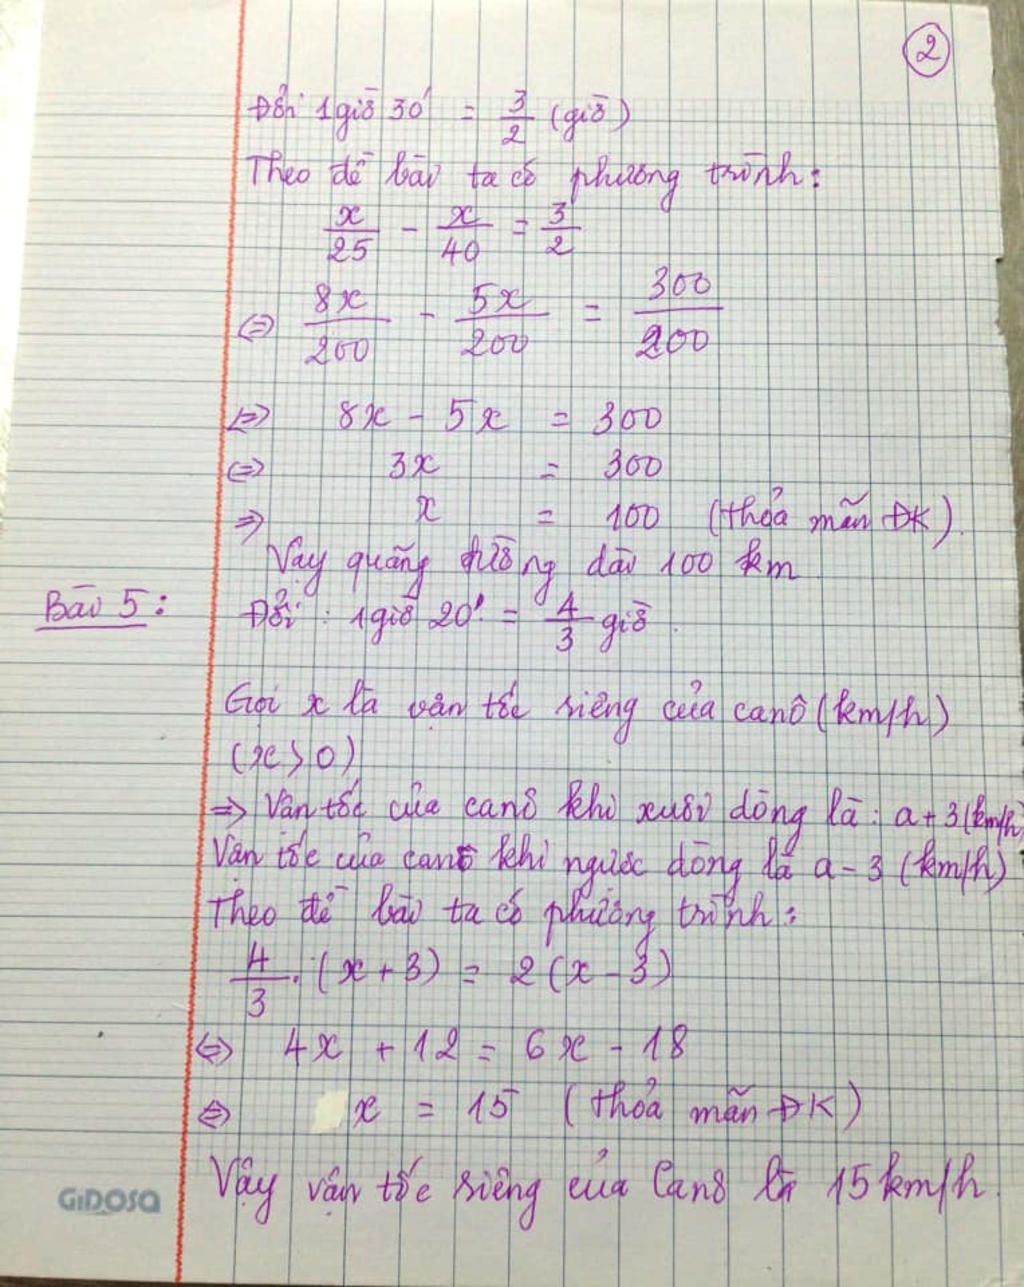 2
Đổi 1 giờ 30' = 3/2 (giờ)
Theo đề bài ta có phương trình:
x/25 - x/40 = 3/2
⇔ 8x/200 - 5x/200 = 300/200
⇔ 8x - 5x = 300
⇔ 3x = 300
⇒ x = 100 (thỏa mãn ĐK).
Vậy quãng đường dài 100 km
Bài 5: Đổi: 1 giờ 20' = 4/3 giờ.
Gọi x là vận tốc riêng của canô (km/h)
(x > 0)
⇒ Vận tốc của canô khi xuôi dòng là: a + 3 (km/h)
Vận tốc của canô khi ngược dòng là a - 3 (km/h)
Theo đề bài ta có phương trình:
4/3 . (x + 3) = 2 (x - 3)
⇔ 4x + 12 = 6x - 18
⇔ x = 15 (thỏa mãn ĐK)
Vậy vận tốc riêng của Canô là 15 km/h.
GIDOSA